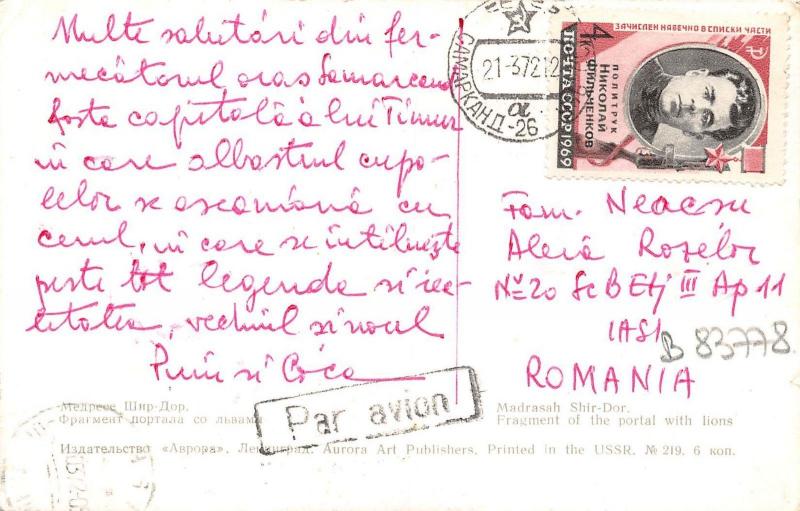 Multe salutări din fer-
mecătorul oraș Samarcand
fosta capitală a lui Timur
în care albastrul cupo-
lelor se aseamănă cu
cerul, în care se întîlnește
peste tot legenda și rea-
litatea, vechiul și noul
Puiu și Coca
САМАРКАНД-26
21-37212
а
ЗАЧИСЛЕН НАВЕЧНО В СПИСКИ ЧАСТИ
4к
ПОЛИТРУК
НИКОЛАЙ
ФИЛЬЧЕНКОВ
ПОЧТА СССР 1969
Fam. Neacșu
Aleia Rozelor
No 20 Sc B Etj III Ap 11
IAȘI
B 83778
ROMANIA
Par avion
Медресе Шир-Дор.
Фрагмент портала со львами
Madrasah Shir-Dor.
Fragment of the portal with lions
Издательство «Аврора». Ленинград. Aurora Art Publishers. Printed in the USSR. № 219. 6 коп.